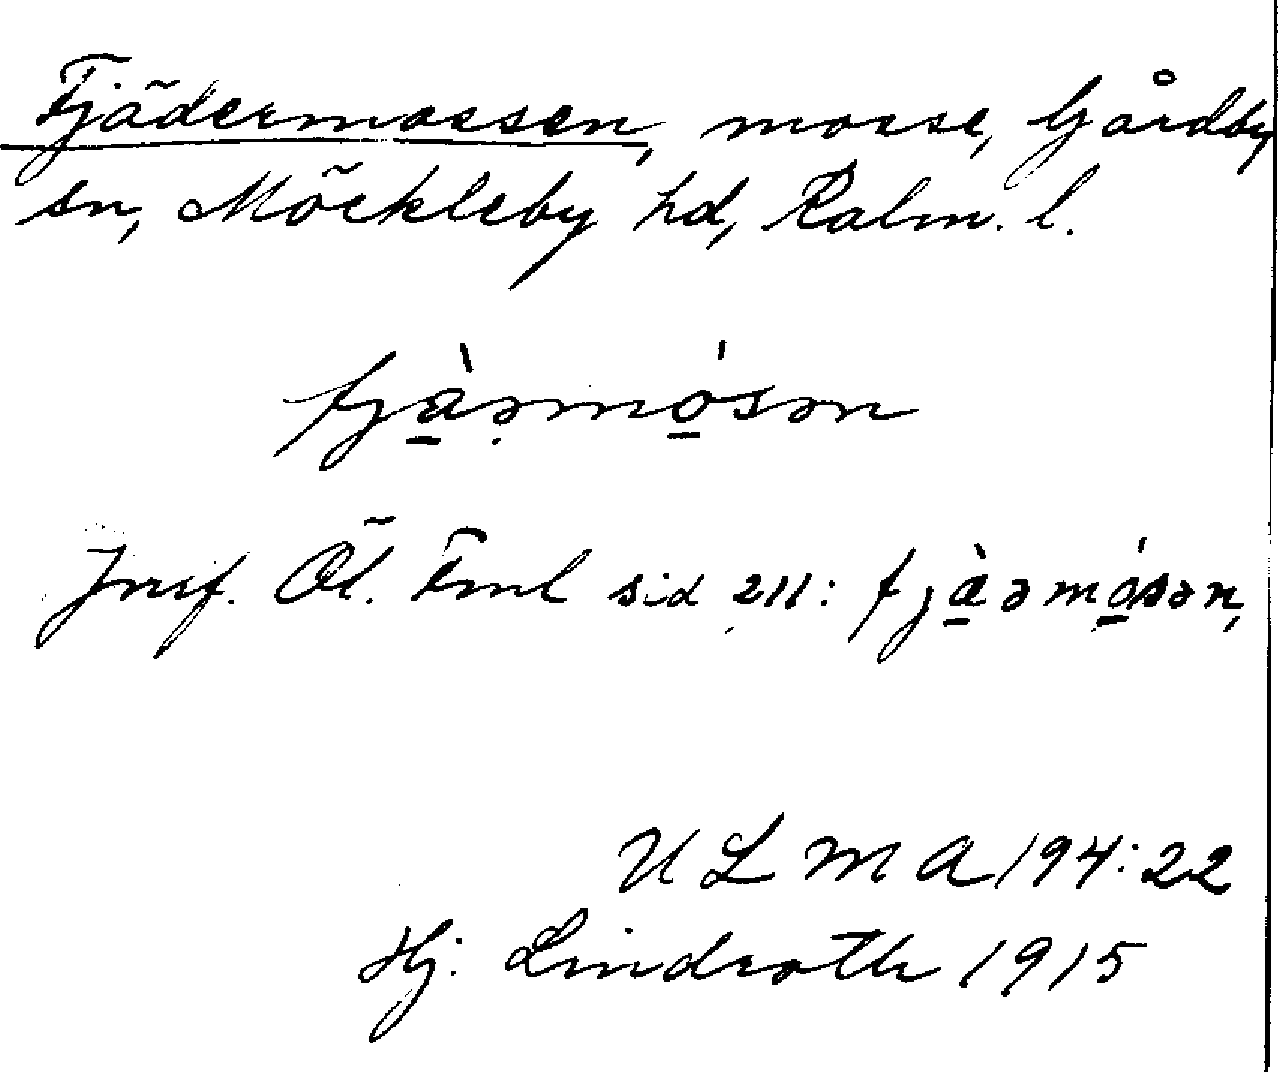 Fjädermossen, mosse, Gårdby
sn, Möckleby hd, Kalm. l.
fjàə̣rmósən
Jmf. Öl. Fml sid 211: fjàəmósən,
ULMA 194:22
Hj. Lindroth 1915